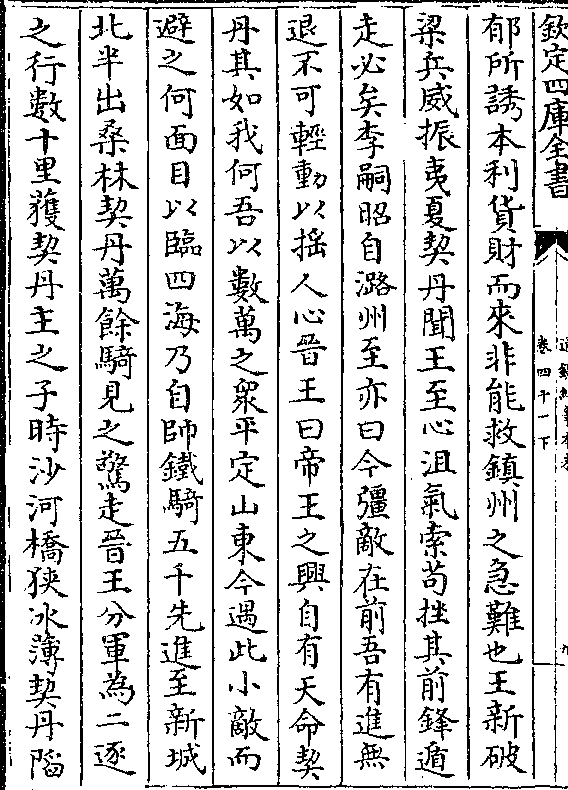 欽定四庫全書
卷四十一下
郁所誘本利貨財而來非能救鎮州之急難也王新破
梁兵威振夷夏契丹聞王至心沮氣索苟挫其前鋒遁
走必矣李嗣昭自潞州至亦曰今彊敵在前吾有進無
退不可輕動以揺人心晉王曰帝王之興自有天命契
丹其如我何吾以數萬之衆平定山東今遇此小敵而
避之何面目以臨四海乃自帥鐵騎五千先進至新城
北半出桑林契丹萬餘騎見之驚走晉王分軍為二逐
之行數十里獲契丹主之子時沙河橋狹冰薄契丹陷